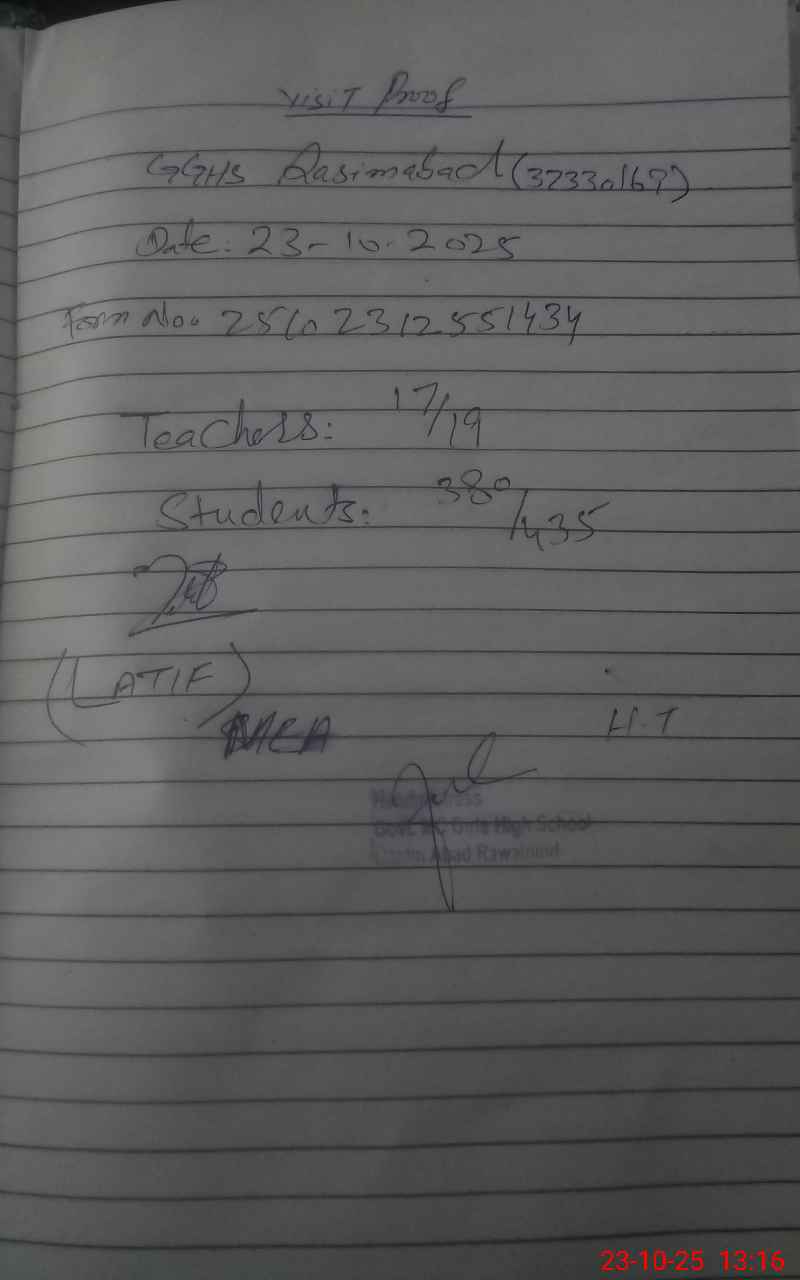 Visit Proof
GGHS Qasimabad (37330167)
Date: 23-10-2025
Form No. 25102312551434
Teachers: 17/19
Students: 380/435
(LATIF)
MEA
H.T
Headmistress
Govt. MC Girls High School
Qasim Abad Rawalpindi
23-10-25 13:16